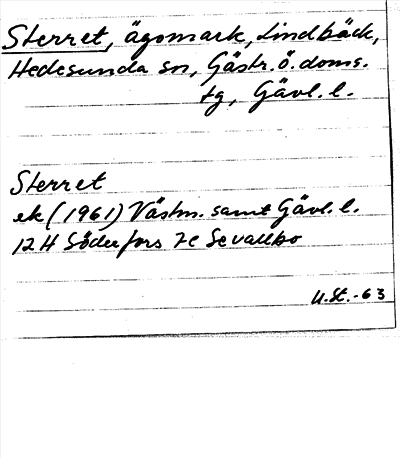 Sterret, ägomark, Lindbäck,
Hedesunda sn, Gästr. ö. doms.
tg, Gävl. l.
Sterret
ek (1961) Västm. samt Gävl. l.
12 H Söderfors 7c Sevallbo
U.St.-63